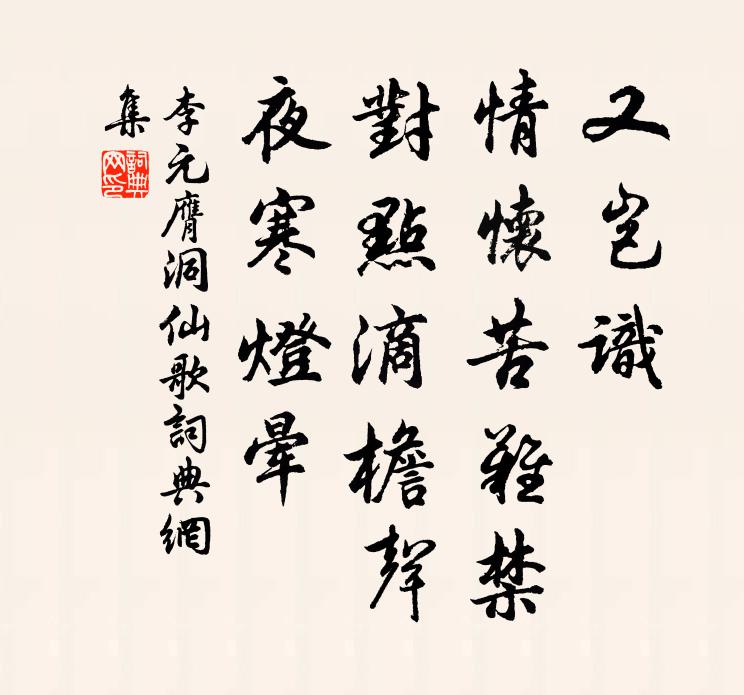 又豈識
情懷苦難禁
對點滴檐聲
夜寒燈暈
李元膺洞仙歌詞典網
集
詞典網印